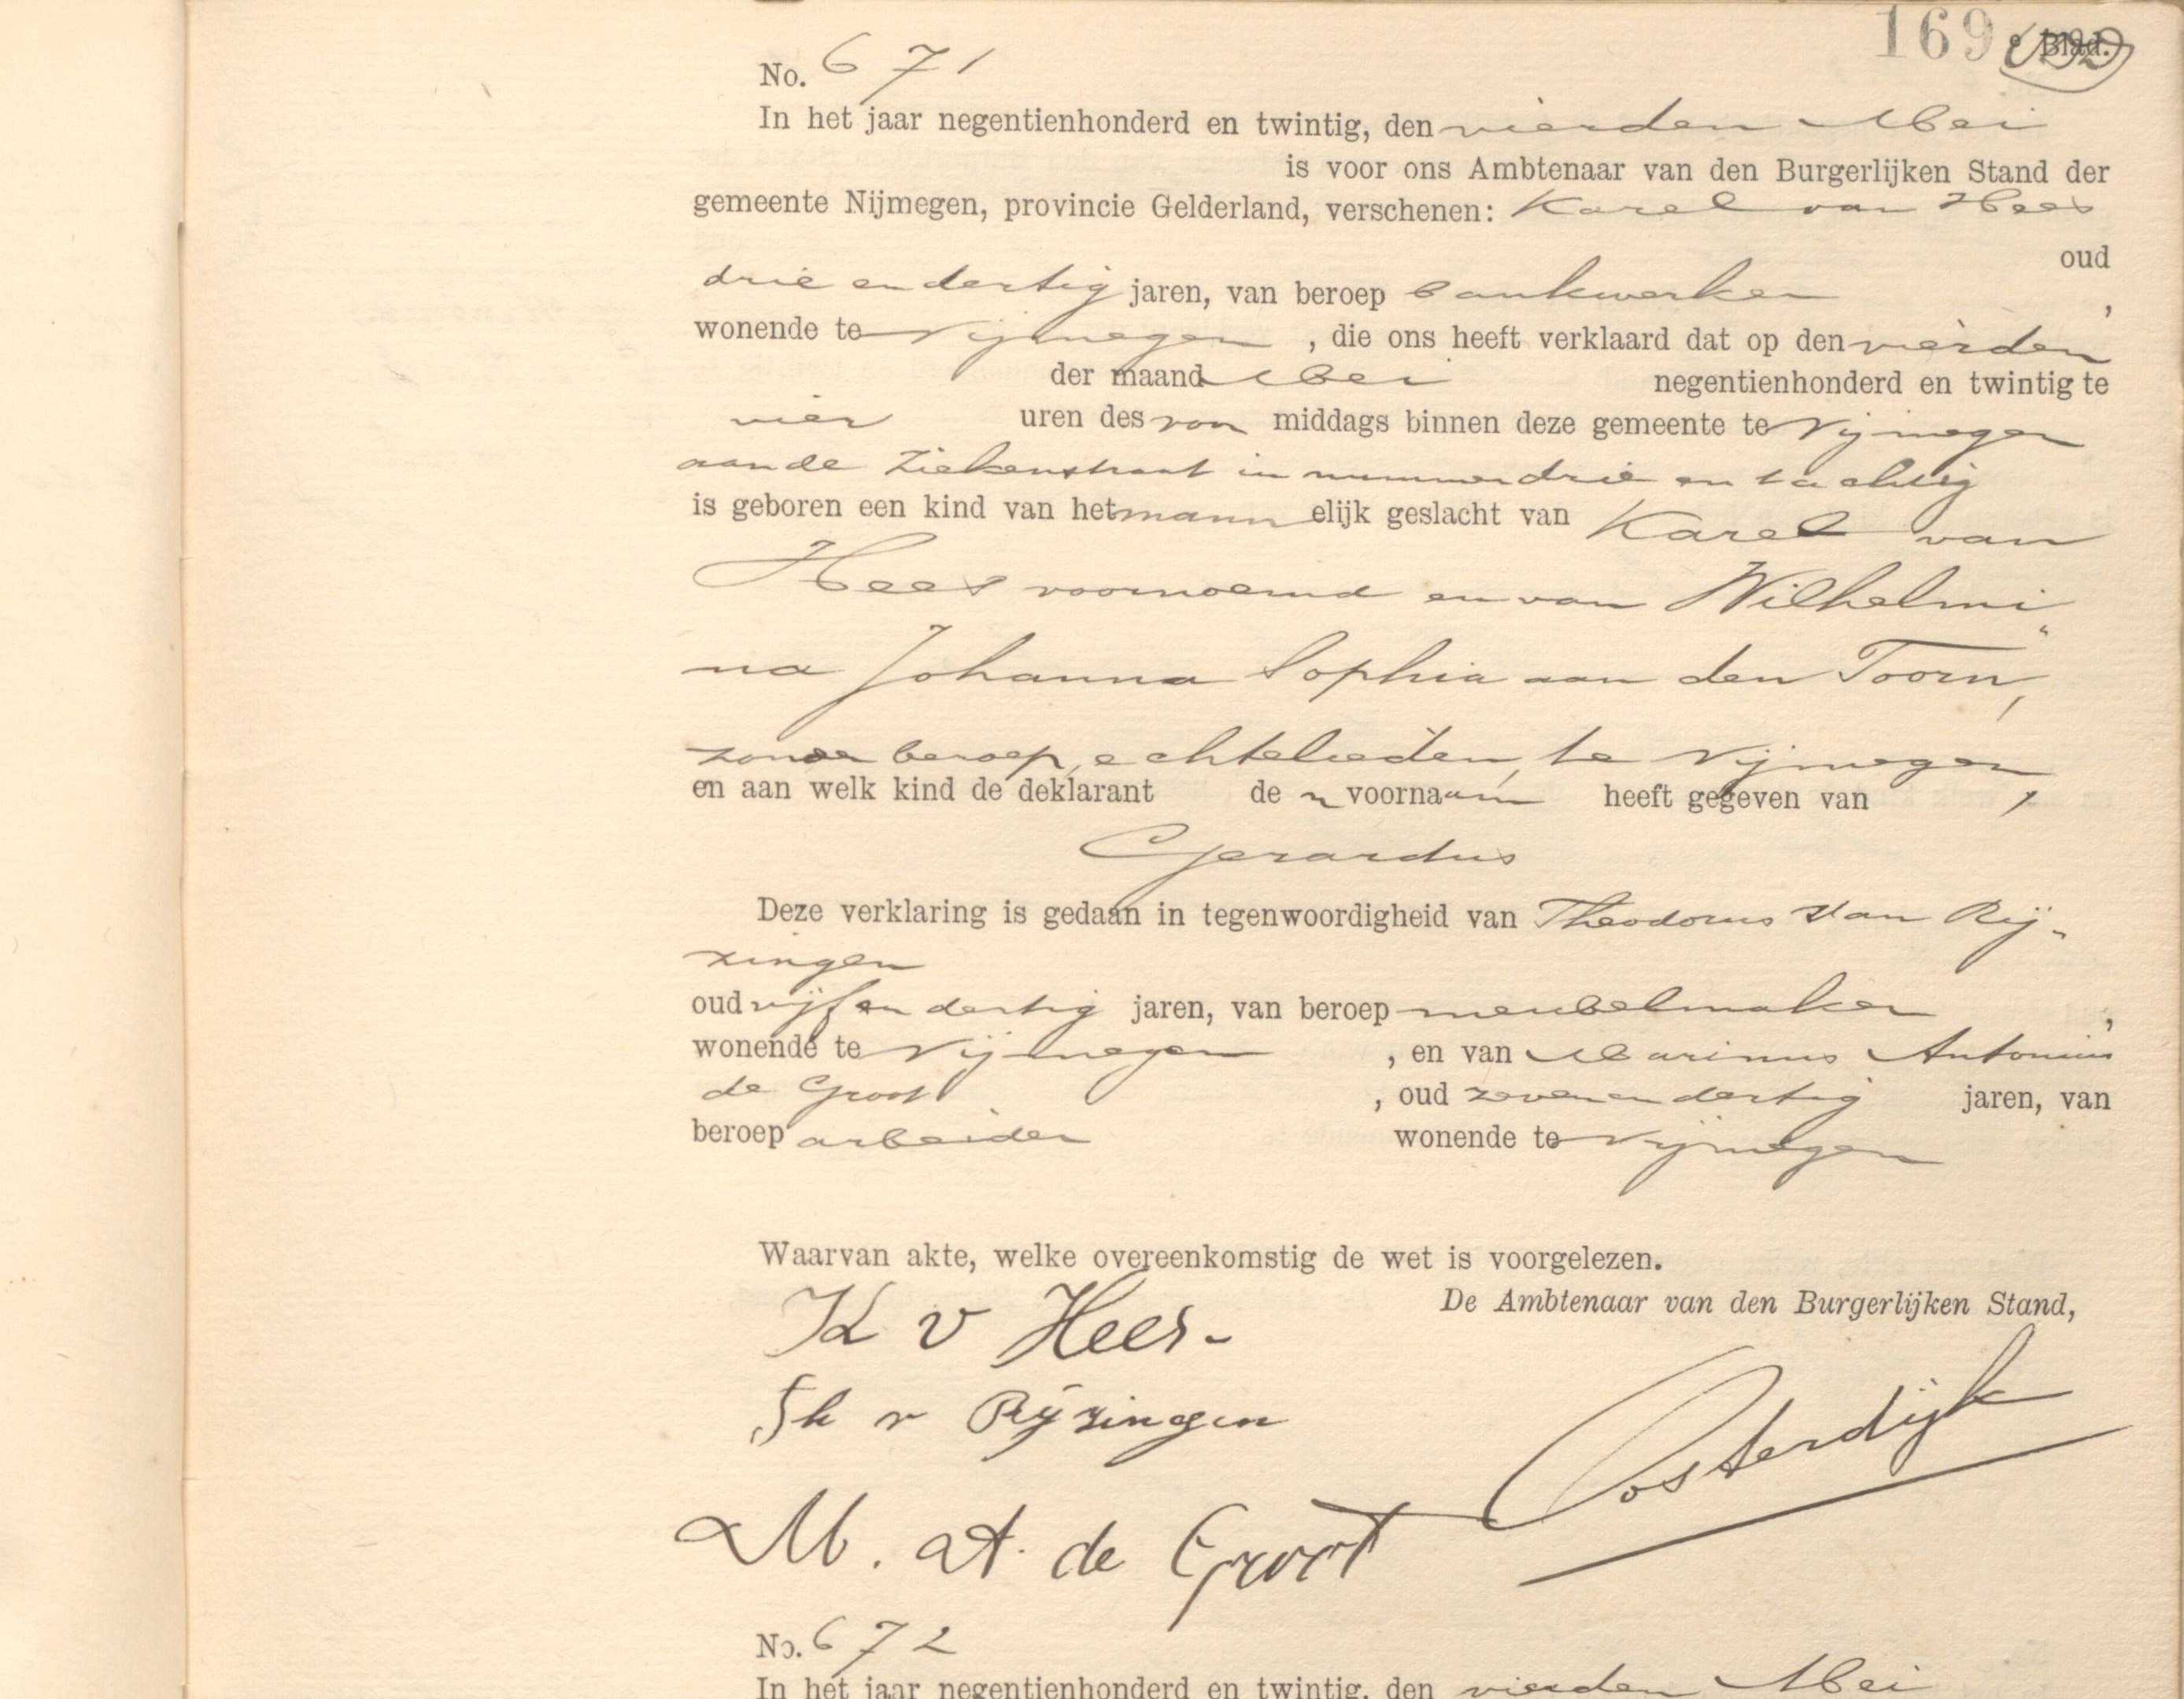 169 e Blad.
No. 671
In het jaar negentienhonderd en twintig, den vierden Mei
is voor ons Ambtenaar van den Burgerlijken Stand der
gemeente Nijmegen, provincie Gelderland, verschenen: Karel van Hees
oud
drie en dertig jaren, van beroep bankwerker ,
wonende te Nijmegen , die ons heeft verklaard dat op den vierden
der maand Mei negentienhonderd en twintig te
vier uren des voor middags binnen deze gemeente te Nijmegen
aan de Ziekenstraat in nummer drie en tachtig
is geboren een kind van het mann elijk geslacht van Karel van
Hees voornoemd en van Wilhelmi„
na Johanna Sophia aan den Toorn,
zonder beroep, echtelieden, te Nijmegen,
en aan welk kind de deklarant de n voornaam heeft gegeven van
Gerardus
Deze verklaring is gedaan in tegenwoordigheid van Theodorus van Rij-
zingen
oud vijf en dertig jaren, van beroep meubelmaker ,
wonende te Nijmegen , en van Marinus Antonius
de Groot , oud zeven en dertig jaren, van
beroep arbeider wonende te Nijmegen
Waarvan akte, welke overeenkomstig de wet is voorgelezen.
De Ambtenaar van den Burgerlijken Stand,
K v Hees-
Th v Rijzingen
Oosterdijk
M. A. de Groot
No. 672
In het jaar negentienhonderd en twintig, den vierden Mei